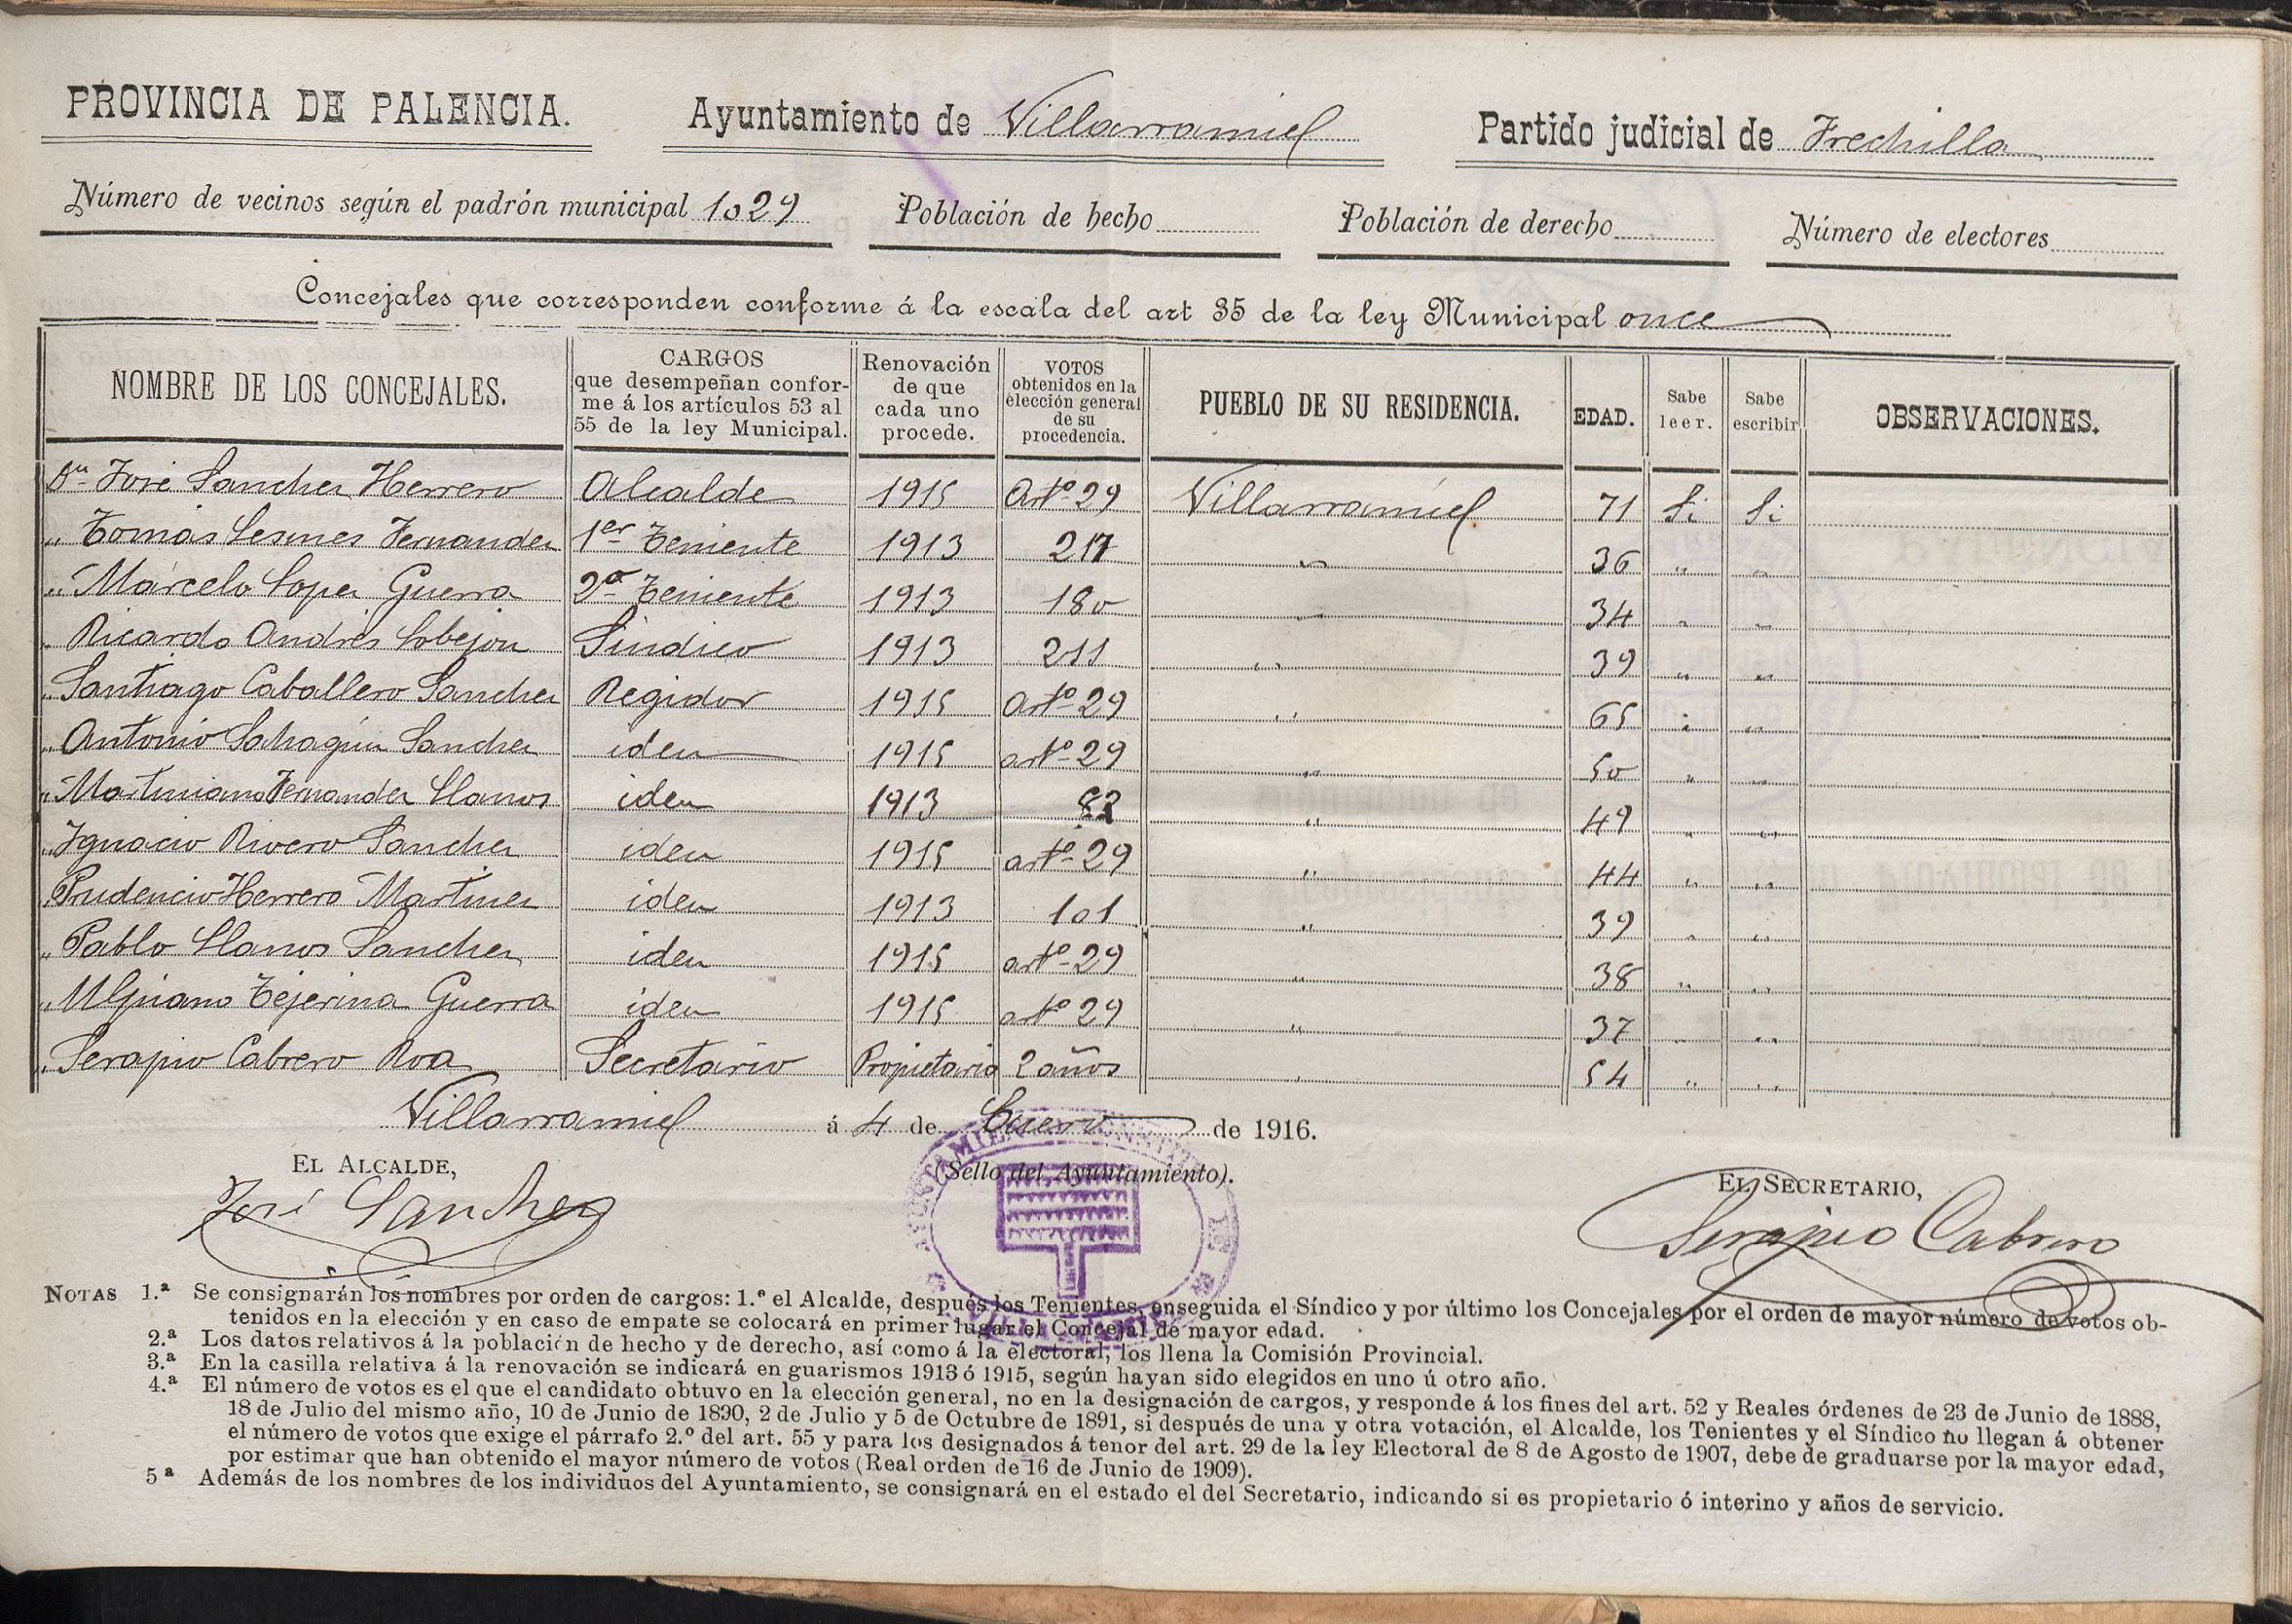 PROVINCIA DE PALENCIA. Ayuntamiento de Villarramiel Partido judicial de Frechilla
Número de vecinos según el padrón municipal 1029 Población de hecho Población de derecho Número de electores
Concejales que corresponden conforme á la escala del art 35 de la ley Municipal once
NOMBRE DE LOS CONCEJALES. CARGOS que desempeñan conforme á los artículos 53 al 55 de la ley Municipal. Renovación de que cada uno procede. VOTOS obtenidos en la elección general de su procedencia. PUEBLO DE SU RESIDENCIA. EDAD. Sabe leer. Sabe escribir OBSERVACIONES.
Dn José Sanchez Herrero Alcalde 1915 Artº 29 Villarramiel 71 Si Si
" Tomás Lesmes Fernandez 1er Teniente 1913 217 " 36 " "
" Marcelo Lopez Guerra 2º Teniente 1913 180 " 34 " "
" Ricardo Andrés Lobejon Sindico 1913 211 " 39 " "
" Santiago Caballero Sanchez Regidor 1915 Artº 29 " 65 " "
" Antonio Sahagún Sanchez iden 1915 artº 29 " 50 " "
" Martiniano Fernandez Llanos iden 1913 " 49 " "
" Ignacio Rivero Sanchez iden 1915 artº 29 " 44 " "
" Prudencio Herrero Martinez iden 1913 101 " 39 " "
" Pablo Llanos Sanchez iden 1915 artº 29 " 38 " "
" Ulpiano Tejerina Guerra iden 1915 artº 29 " 37 " "
" Serapio Cabrero Roa Secretario Propietario 2 años " 54 " "
Villarramiel á 4 de Enero de 1916.
EL ALCALDE, (Sello del Ayuntamiento). EL SECRETARIO,
José Sanchez Serapio Cabrero
NOTAS 1.ª Se consignarán los nombres por orden de cargos: 1.º el Alcalde, después los Tenientes, enseguida el Síndico y por último los Concejales por el orden de mayor número de votos ob-
tenidos en la elección y en caso de empate se colocará en primer lugar el Concejal de mayor edad.
2.ª Los datos relativos á la población de hecho y de derecho, así como á la electoral, los llena la Comisión Provincial.
3.ª En la casilla relativa á la renovación se indicará en guarismos 1913 ó 1915, según hayan sido elegidos en uno ú otro año.
4.ª El número de votos es el que el candidato obtuvo en la elección general, no en la designación de cargos, y responde á los fines del art. 52 y Reales órdenes de 23 de Junio de 1888,
18 de Julio del mismo año, 10 de Junio de 1890, 2 de Julio y 5 de Octubre de 1891, si después de una y otra votación, el Alcalde, los Tenientes y el Síndico no llegan á obtener
el número de votos que exige el párrafo 2.º del art. 55 y para los designados á tenor del art. 29 de la ley Electoral de 8 de Agosto de 1907, debe de graduarse por la mayor edad,
por estimar que han obtenido el mayor número de votos (Real orden de 16 de Junio de 1909).
5ª Además de los nombres de los individuos del Ayuntamiento, se consignará en el estado el del Secretario, indicando si es propietario ó interino y años de servicio.